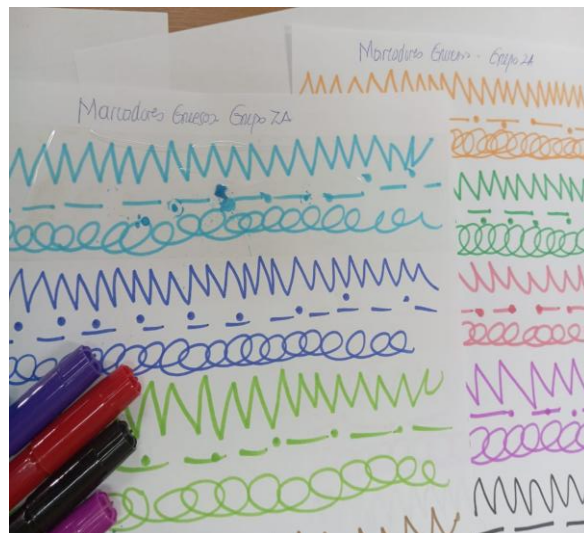 Marcadores Gruesos Grupo 2A
Marcadores Gruesos - Grupo 2A